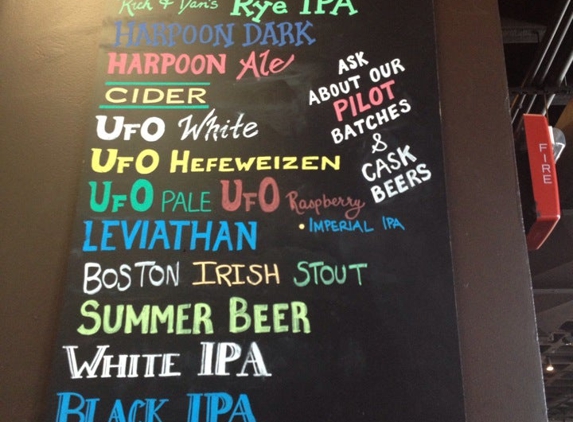 Rich & Dan's Rye IPA
HARPOON DARK
HARPOON Ale
CIDER
UFO White
UFO HEFEWEIZEN
UFO PALE UFO Raspberry
LEVIATHAN • IMPERIAL IPA
BOSTON IRISH STOUT
SUMMER BEER
WHITE IPA
BLACK IPA
ASK
ABOUT OUR
PILOT
BATCHES
&
CASK
BEERS
FIRE